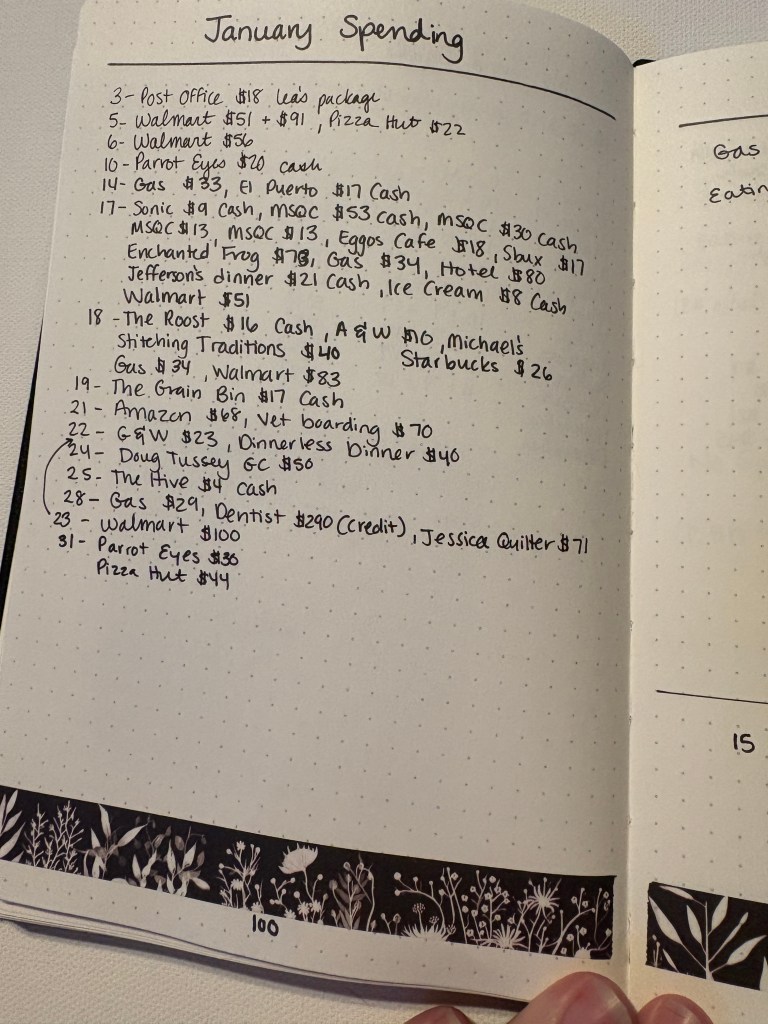 January Spending
3 - Post Office $18 Lea's package
5 - Walmart $51 + $91, Pizza Hut $22
6 - Walmart $56
10 - Parrot Eyes $20 cash
14 - Gas $33, El Puerto $17 Cash
17 - Sonic $9 Cash, MSQC $53 cash, MSQC $30 cash
MSQC $13, MSQC $13, Eggos Cafe $18, Sbux $17
Enchanted Frog $73, Gas $34, Hotel $80
Jefferson's dinner $21 Cash, Ice Cream $8 Cash
Walmart $51
18 - The Roost $16 Cash, A & W $10, Michael's
Stitching Traditions $40 Starbucks $26
Gas $34, Walmart $83
19 - The Grain Bin $17 Cash
21 - Amazon $68, Vet boarding $70
22 - G&W $23, Dinnerless Dinner $40
24 - Doug Tussey GC $50
25 - The Hive $4 cash
28 - Gas $29, Dentist $290 (Credit), Jessica Quilter $71
23 - Walmart $100
31 - Parrot Eyes $36
Pizza Hut $44
100
Gas
15